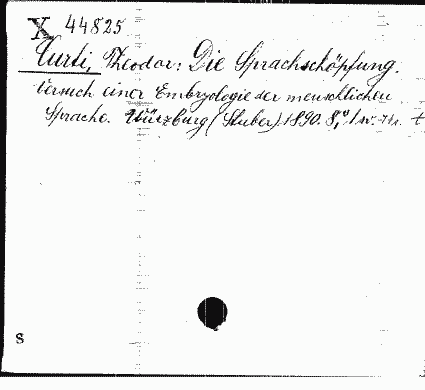 X 44825
Curti, Theodor: Die Sprachschöpfung.
Versuch einer Embryologie der menschlichen
Sprache. Würzburg (Stuber) 1890. 8°,
s